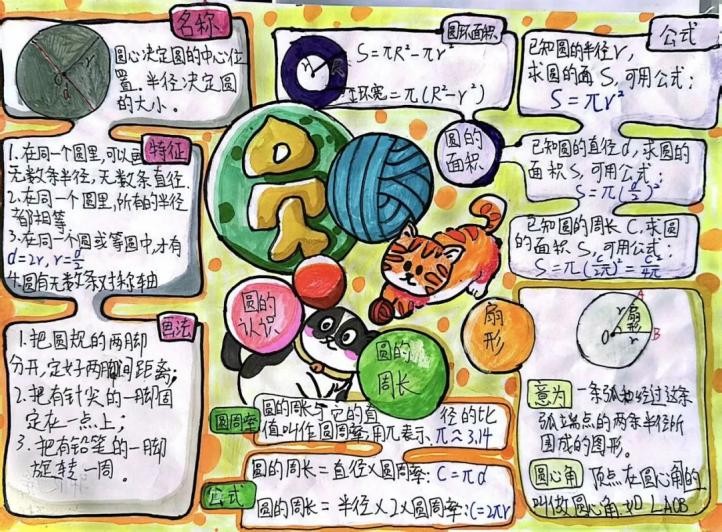 名称
圆心决定圆的中心位
置.半径决定圆
的大小.
特征
1.在同一个圆里,可以画
无数条半径,无数条直径.
2.在同一个圆里,所有的半径
都相等.
3.在同一个圆或等圆中,才有
d=2r,r=d/2
4.圆有无数条对称轴
画法
1.把圆规的两脚
分开,定好两脚间距离;
2.把有针尖的一脚固
定在一点上;
3.把有铅笔的一脚
旋转一周。
圆环面积
S=πR²-πr²
环宽=π(R²-r²)
圆的
面积
公式
已知圆的半径r,
求圆的面S,可用公式;
S=πr²
已知圆的直径d,求圆的
面积S,可用公式;
S=π(d/2)²
已知圆的周长C,求圆
的面积S,可用公式;
S=π(C/2π)²=C²/4π
圆的
认识
圆的
周长
扇
形
圆周率
圆的周长与它的直 径的比
值叫作圆周率,用π表示,π≈3.14
公式
圆的周长=直径×圆周率:C=πd
圆的周长=半径×2×圆周率:C=2πr
O r 扇形 r A B
意为 一条弧和经过这条
弧端点的两条半径所
围成的图形。
圆心角 顶点在圆心角的
叫做圆心角.如∠AOB